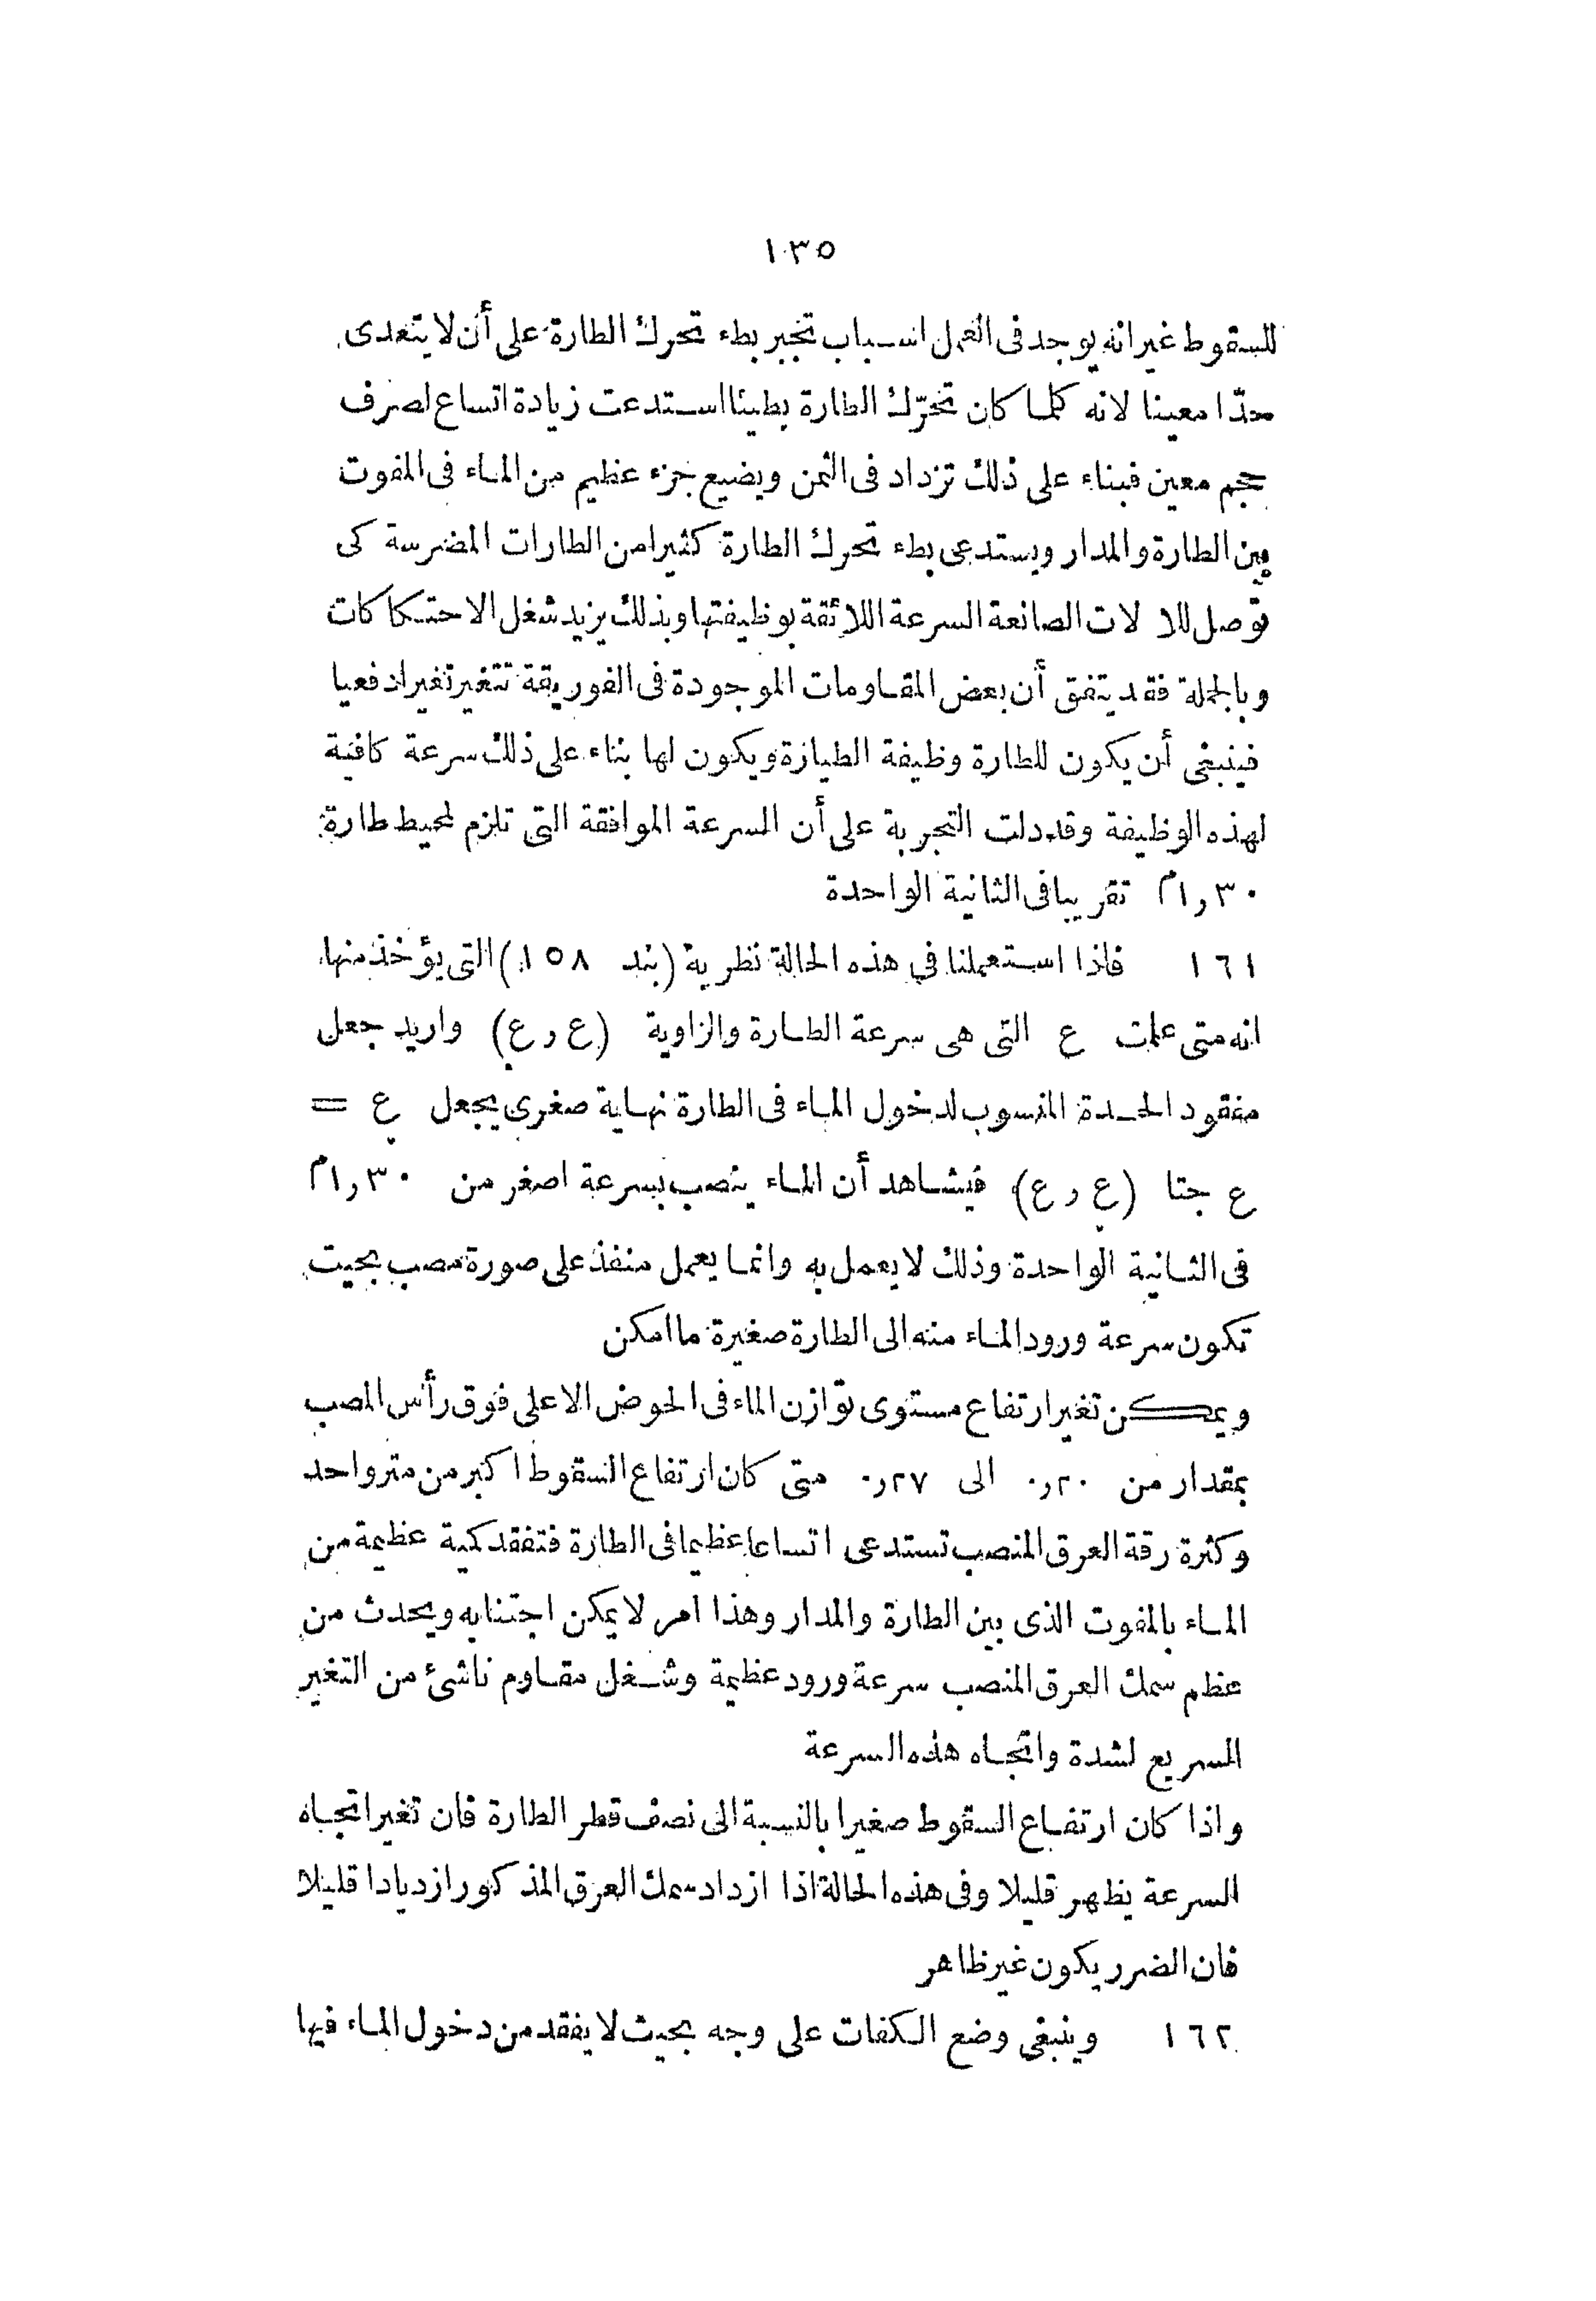 ١٣٥
للسقوط غير انه يوجد فى العمل اسباب تجبر بطء تحرك الطارة على أن لا يتعدى
حدّا معينا لانه كلما كان تحرّك الطارة بطيئا استدعت زيادة اتساع لصرف
حجم معين فبناء على ذلك تزداد فى الثمن ويضيع جزء عظيم من الماء فى المفوت
بين الطارة والمدار ويستدعى بطء تحرك الطارة كثيرا من الطارات المضرسة كى
توصل للالات الصانعة السرعة اللائقة بوظيفتها وبذلك يزيد شغل الاحتكاكات
وبالجملة فقد يتفق أن بعض المقاومات الموجودة فى الفوريقة تتغير تغيرا دفعيا
فينبغى أن يكون للطارة وظيفة الطيارة ويكون لها بناء على ذلك سرعة كافية
لهذه الوظيفة وقد دلت التجربة على أن السرعة الموافقة التى تلزم لمحيط طارة
١٫٣٠م تقريبا فى الثانية الواحدة
١٦١ فاذا استعملنا فى هذه الحالة نظرية (بند ١٥٨) التى يؤخذ منها
انه متى علمت ع التى هى سرعة الطارة والزاوية (ع و ع) واريد جعل
مفقود الحدة المنسوب لدخول الماء فى الطارة نهاية صغرى يجعل ع =
ع جتا (ع و ع) فيشاهد أن الماء ينصب بسرعة اصغر من ١٫٣٠م
فى الثانية الواحدة وذلك لا يعمل به وانما يعمل منفذ على صورة مصب بحيث
تكون سرعة ورود الماء منه الى الطارة صغيرة ما امكن
ويمكن تغير ارتفاع مستوى توازن الماء فى الحوض الاعلى فوق رأس المصب
بمقدار من ٠٫٢٠ الى ٠٫٢٧ متى كان ارتفاع السقوط اكبر من متر واحد
وكثرة رقة العرق المنصب تستدعى اتساعا عظيما فى الطارة فتفقد كمية عظيمة من
الماء بالمفوت الذى بين الطارة والمدار وهذا امر لا يمكن اجتنابه ويحدث من
عظم سمك العرق المنصب سرعة ورود عظيمة وشغل مقاوم ناشئ من التغير
السريع لشدة واتجاه هذه السرعة
واذا كان ارتفاع السقوط صغيرا بالنسبة الى نصف قطر الطارة فان تغير اتجاه
السرعة يظهر قليلا وفى هذه الحالة اذا ازداد سمك العرق المذكور ازديادا قليلا
فان الضرر يكون غير ظاهر
١٦٢ وينبغى وضع الكفات على وجه بحيث لا يفقد من دخول الماء فيها